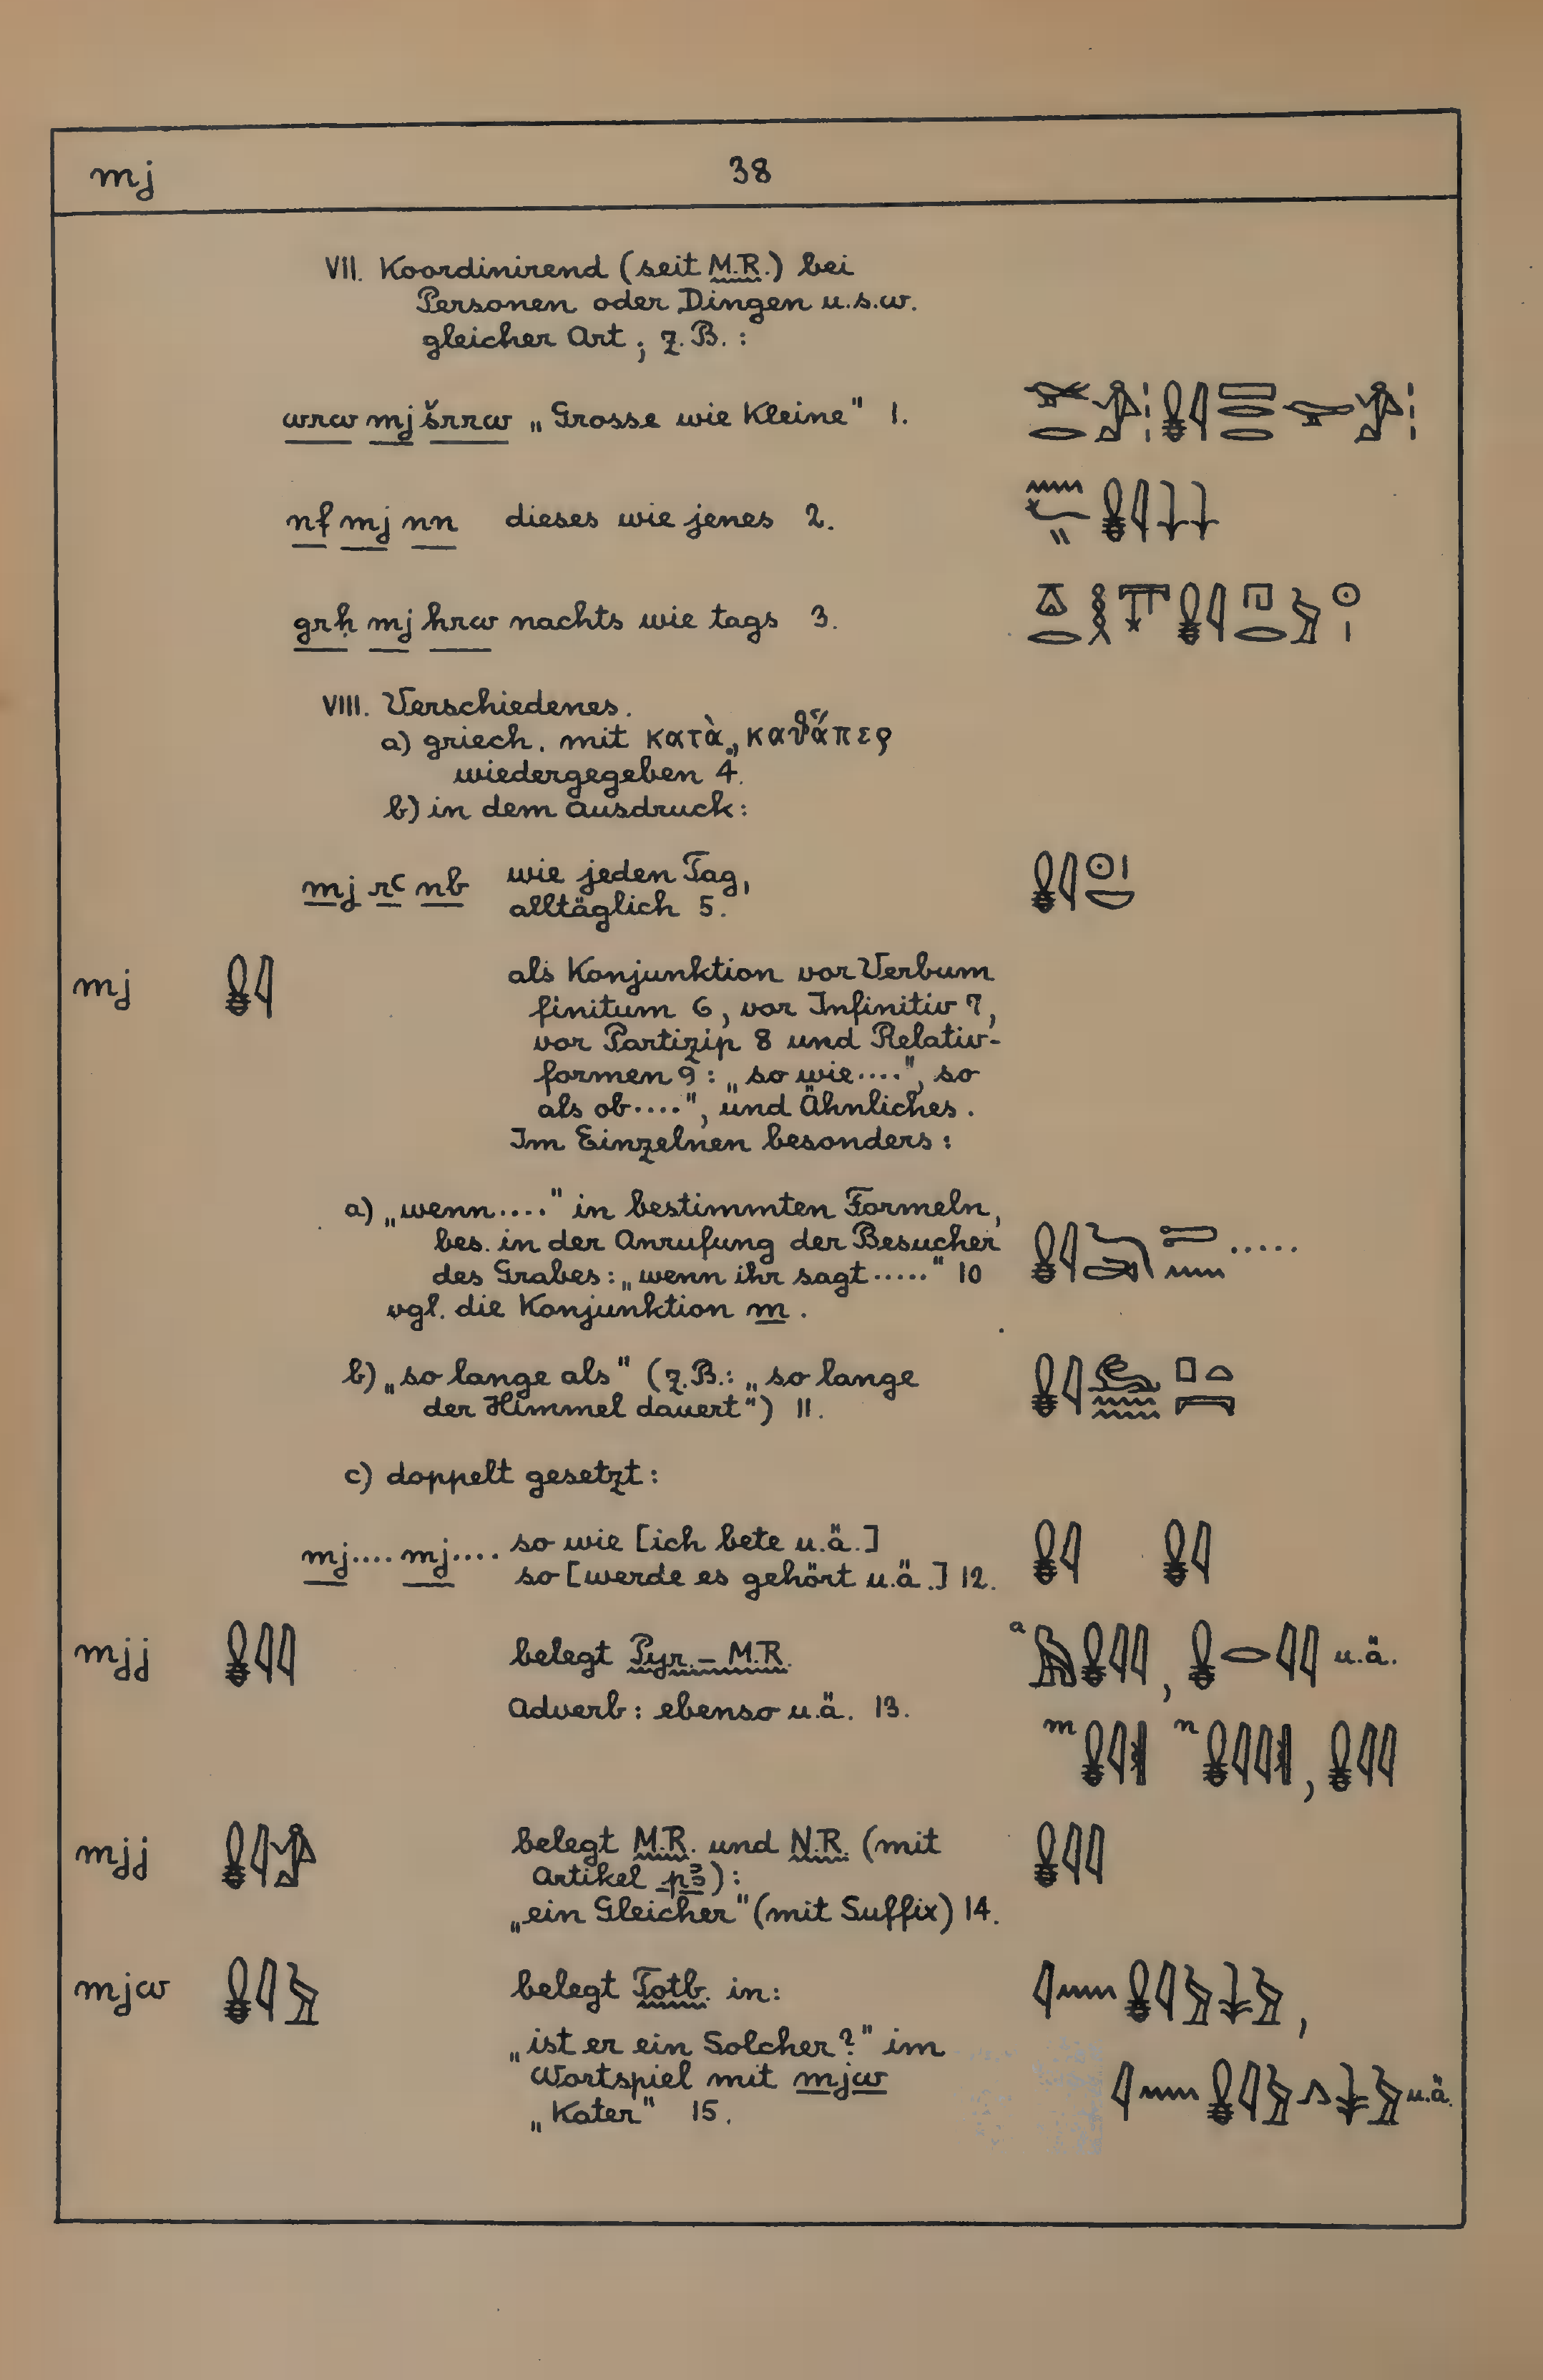 mj 38
VII. Koordinirend (seit M.R.) bei
Personen oder Dingen u.s.w.
gleicher Art; z.B.:
wrw mj šrrw „Grosse wie Kleine" 1.
nf mj nn dieses wie jenes 2.
grḥ mj hrw nachts wie tags 3.
VIII. Verschiedenes.
a) griech. mit κατὰ, καθάπερ
wiedergegeben 4.
b) in dem Ausdruck:
mj rꜥ nb wie jeden Tag,
alltäglich 5.
mj 𓏇𓇋 als Konjunktion vor Verbum
finitum 6, vor Infinitiv 7,
vor Partizip 8 und Relativ-
formen 9: „so wie....", so
als ob....", und Ähnliches.
Im Einzelnen besonders:
a) „wenn...." in bestimmten Formeln,
bes. in der Anrufung der Besucher
des Grabes: „wenn ihr sagt....." 10
vgl. die Konjunktion m.
b) „so lange als" (z.B.: „so lange
der Himmel dauert") 11.
c) doppelt gesetzt:
mj.... mj.... so wie [ich bete u.ä.] 𓏇𓇋 𓏇𓇋
so [werde es gehört u.ä.] 12.
mjj 𓏇𓇋𓇋 belegt Pyr. – M.R. a 𓅓𓏇𓇋𓇋, 𓏇𓂋𓇋𓇋 u.ä.
Adverb: ebenso u.ä. 13.
m n
mjj 𓏇𓇋𓀀 belegt M.R. und N.R. (mit 𓏇𓇋𓇋
Artikel pꜣ):
„ein Gleicher" (mit Suffix) 14.
mjw 𓏇𓇋𓅱 belegt Totb. in: 𓇋𓈖𓏇𓇋𓅱𓇓𓅱,
„ist er ein Solcher?" im
Wortspiel mit mjw 𓇋𓈖𓏇𓇋𓅱𓂻𓇓𓅱 u.ä.
„Kater" 15.